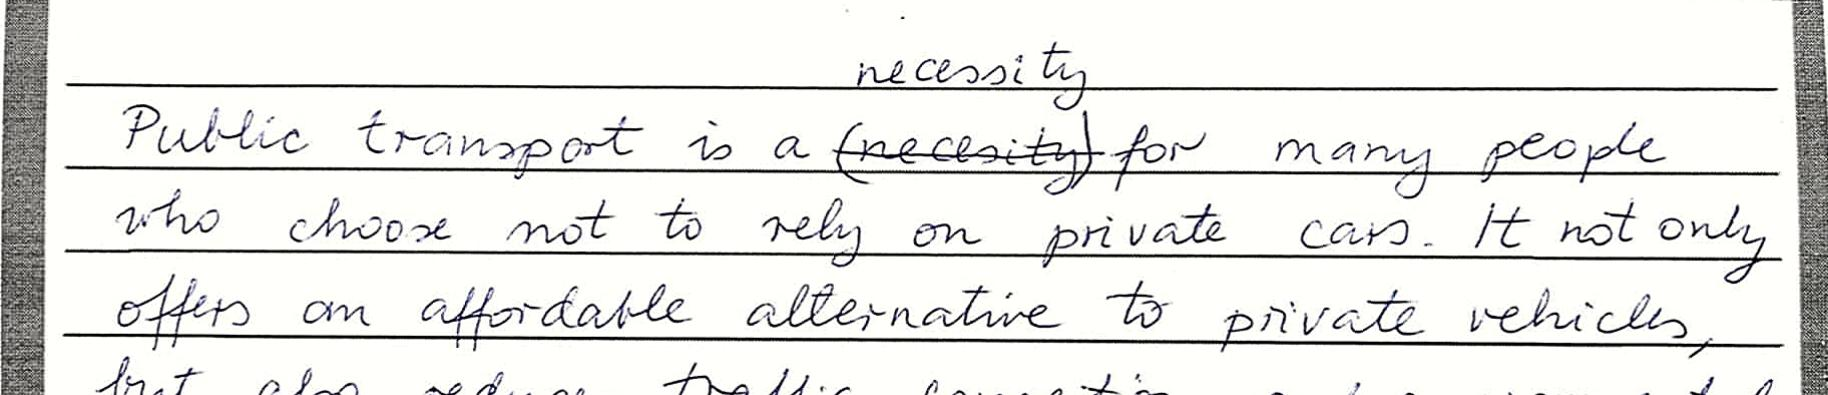 necessity
Public transport is a (necesity) for many people
who choose not to rely on private cars. It not only
offers an affordable alternative to private vehicles,
but also traffic